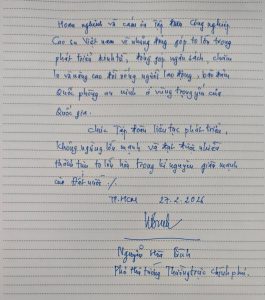 Hoan nghênh và cảm ơn Tập đoàn Công nghiệp
Cao su Việt nam về những đóng góp to lớn trong
phát triển kinh tế, đóng góp ngân sách, chăm
lo và nâng cao đời sống người lao động, bảo đảm
Quốc phòng an ninh ở vùng trọng yếu của
Quốc gia.
Chúc Tập đoàn liên tục phát triển,
không ngừng lớn mạnh và đạt thêm nhiều
thành tựu to lớn hơn trong kỉ nguyên giàu mạnh
của Đất nước ./.
TP. HCM 27.2.2026
Nguyễn Hòa Bình
Phó thủ tướng Thường trực Chính phủ.